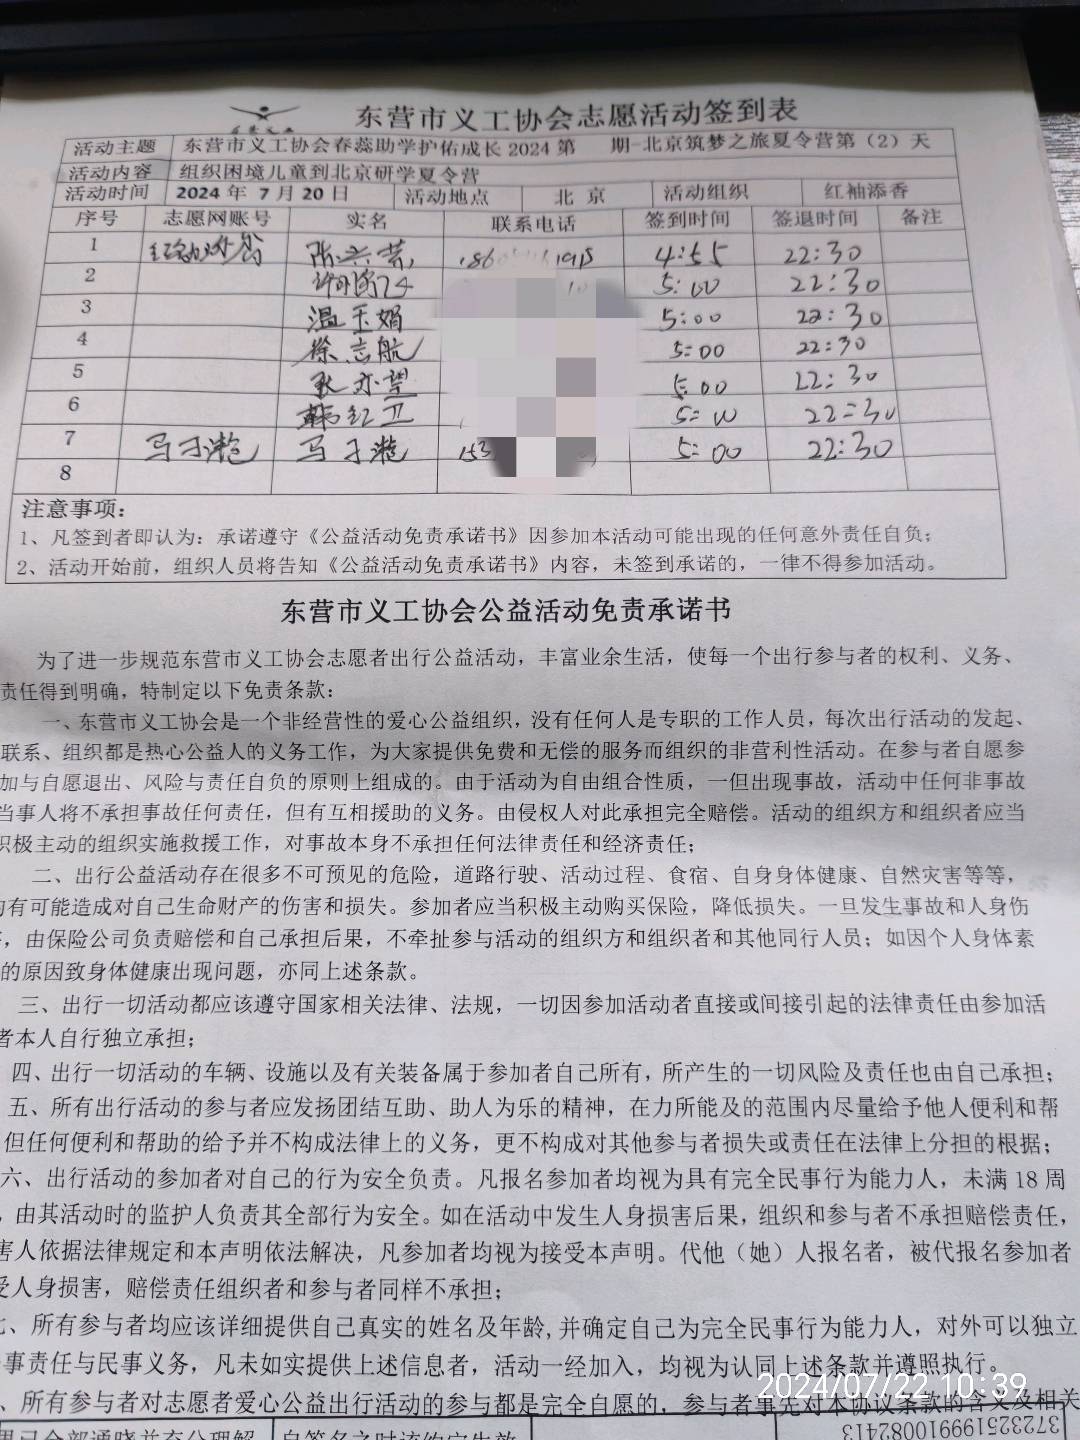 东营市义工协会志愿活动签到表
活动主题 东营市义工协会春蕊助学护佑成长 2024 第 期-北京筑梦之旅夏令营第（2）天
活动内容 组织困境儿童到北京研学夏令营
活动时间 2024 年 7 月 20 日 活动地点 北 京 活动组织 红袖添香
序号 志愿网账号 实名 联系电话 签到时间 签退时间 备注
1 4:55 22:30
2 5:00 22:30
3 温玉娟 5:00 22:30
4 徐志航 5:00 22:30
5 5:00 22:30
6 韩红卫 5:00 22:30
7 5:00 22:30
8
注意事项：
1、凡签到者即认为：承诺遵守《公益活动免责承诺书》因参加本活动可能出现的任何意外责任自负；
2、活动开始前，组织人员将告知《公益活动免责承诺书》内容，未签到承诺的，一律不得参加活动。
东营市义工协会公益活动免责承诺书
为了进一步规范东营市义工协会志愿者出行公益活动，丰富业余生活，使每一个出行参与者的权利、义务、
责任得到明确，特制定以下免责条款：
一、东营市义工协会是一个非经营性的爱心公益组织，没有任何人是专职的工作人员，每次出行活动的发起、
联系、组织都是热心公益人的义务工作，为大家提供免费和无偿的服务而组织的非营利性活动。在参与者自愿参
加与自愿退出、风险与责任自负的原则上组成的。由于活动为自由组合性质，一但出现事故，活动中任何非事故
当事人将不承担事故任何责任，但有互相援助的义务。由侵权人对此承担完全赔偿。活动的组织方和组织者应当
积极主动的组织实施救援工作，对事故本身不承担任何法律责任和经济责任；
二、出行公益活动存在很多不可预见的危险，道路行驶、活动过程、食宿、自身身体健康、自然灾害等等，
均有可能造成对自己生命财产的伤害和损失。参加者应当积极主动购买保险，降低损失。一旦发生事故和人身伤
，由保险公司负责赔偿和自己承担后果，不牵扯参与活动的组织方和组织者和其他同行人员；如因个人身体素
的原因致身体健康出现问题，亦同上述条款。
三、出行一切活动都应该遵守国家相关法律、法规，一切因参加活动者直接或间接引起的法律责任由参加活
者本人自行独立承担；
四、出行一切活动的车辆、设施以及有关装备属于参加者自己所有，所产生的一切风险及责任也由自己承担；
五、所有出行活动的参与者应发扬团结互助、助人为乐的精神，在力所能及的范围内尽量给予他人便利和帮
但任何便利和帮助的给予并不构成法律上的义务，更不构成对其他参与者损失或责任在法律上分担的根据；
六、出行活动的参加者对自己的行为安全负责。凡报名参加者均视为具有完全民事行为能力人，未满 18 周
，由其活动时的监护人负责其全部行为安全。如在活动中发生人身损害后果，组织和参与者不承担赔偿责任，
害人依据法律规定和本声明依法解决，凡参加者均视为接受本声明。代他（她）人报名者，被代报名参加者
受人身损害，赔偿责任组织者和参与者同样不承担；
七、所有参与者均应该详细提供自己真实的姓名及年龄,并确定自己为完全民事行为能力人，对外可以独立
事责任与民事义务，凡未如实提供上述信息者，活动一经加入，均视为认同上述条款并遵照执行。
、所有参与者对志愿者爱心公益出行活动的参与都是完全自愿的，参与者事先对本协议条款的含义及相关
2024/07/22 10:39
372325199910082413